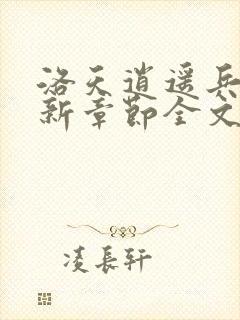 洛天逍遥兵
新章节全文
凌長轩